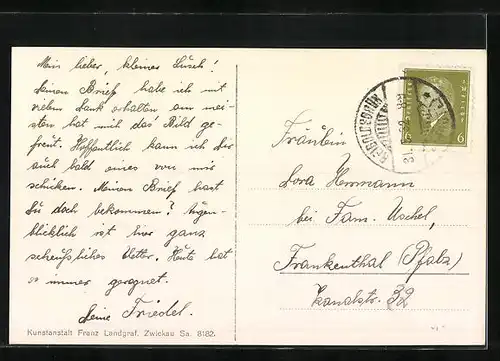 Mein lieber, kleines Lusch!
Deinen Brief habe ich mit
vielem Dank erhalten am mei-
sten hat mich das Bild ge-
freut. Hoffentlich kann ich Dir
auch bald eines von mir
schicken. Meinen Brief hast
Du doch bekommen? Augen-
blicklich ist hier ganz
scheussliches Wetter. Heute hat
es immer geregnet.
Deine Friedel.
Kunstanstalt Franz Landgraf, Zwickau Sa. 8182.
6 6
Fräulein
Lora Hermann
bei Fam. Uschel,
Frankenthal (Pfalz)
Kanalstr. 32